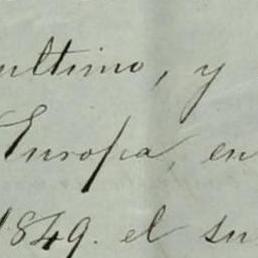 ultimo, y
Europa, en
1849. el su